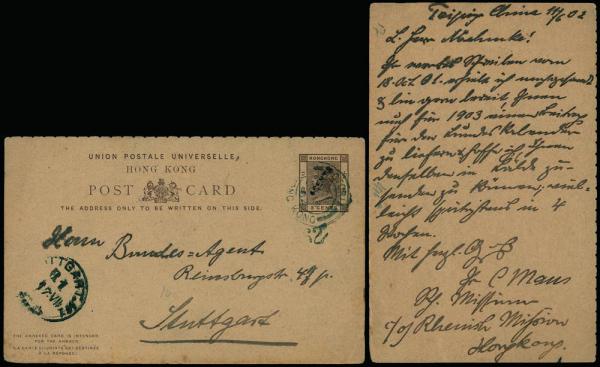 UNION POSTALE UNIVERSELLE,
HONG KONG
POST CARD
THE ADDRESS ONLY TO BE WRITTEN ON THIS SIDE.
HONGKONG
Herrn Bundes=Agent
Reinsburgstr.
Stuttgart
STUTTGART
THE ANNEXED CARD IS INTENDED
FOR THE ANSWER.
LA CARTE CI-JOINTE EST DESTINÉE
À LA RÉPONSE.
China 11/6 02
L. Herr
Ihr werthes Schreiben vom
18. Oct. 01. erhielt ich
& bin gern bereit Ihnen
auch für 1903 einen Beitrag
für den Bundes Kalender
zu liefern & hoffe ich Ihnen
denselben in Bälde zu-
senden zu können, viel-
leicht spätestens in 4
Wochen.
Mit
C Maus
Rh. Mission
c/o Rhenish Mission
Hongkong.